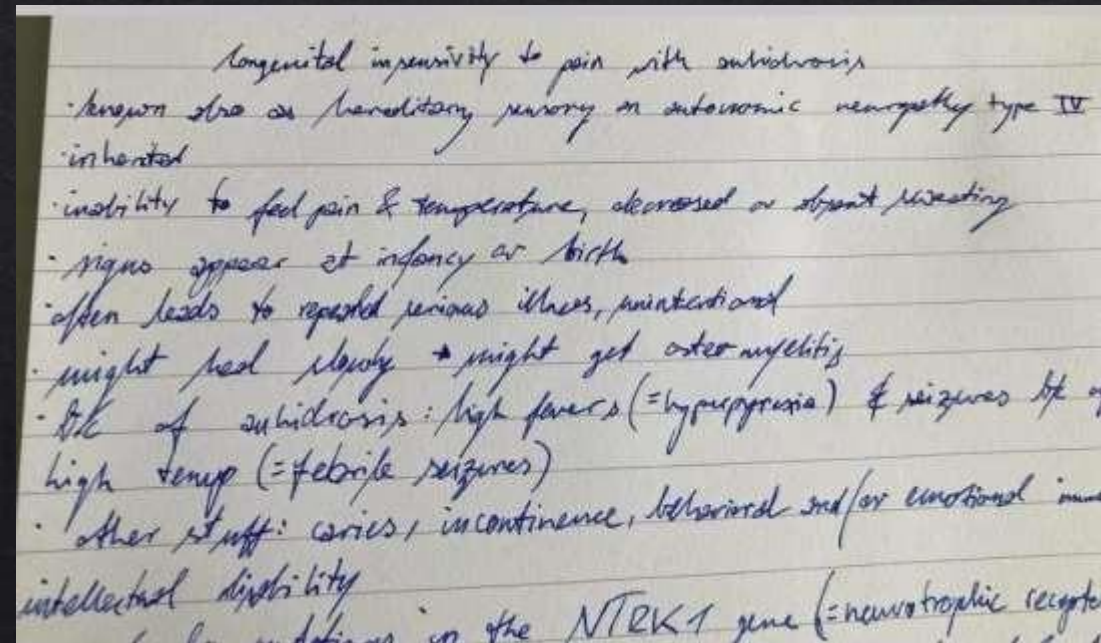 Congenital insensivity to pain with anhidrosis
· known also as hereditary sensory an autonomic neuropathy type IV
· inherited
· inability to feel pain & temperature, decreased or absent sweating
· signs appear at infancy or birth
· often leads to repeated serious illnes, unintentional
· might heal slowly → might get osteomyelitis
· bc of anhidrosis: high fevers (=hyperpyrexia) & seizures bc of
high temp (=febrile seizures)
· other stuff: caries, incontinence, behavioral and/or emotional
intellectual disability
mutations in the NTRK1 gene (=neurotrophic